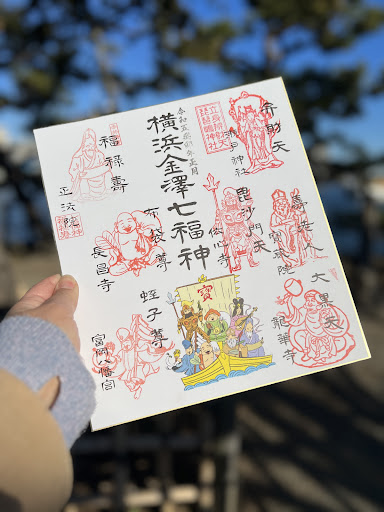 弁財天
瀬戸神社
琵琶嶋神社
壽老人
寶蔵院
大黒天
龍華寺
毘沙門天
伝心寺
令和五癸卯年正月
横浜金澤七福神
寶
福禄壽
正法院
布袋尊
長昌寺
蛭子尊
富岡八幡宮